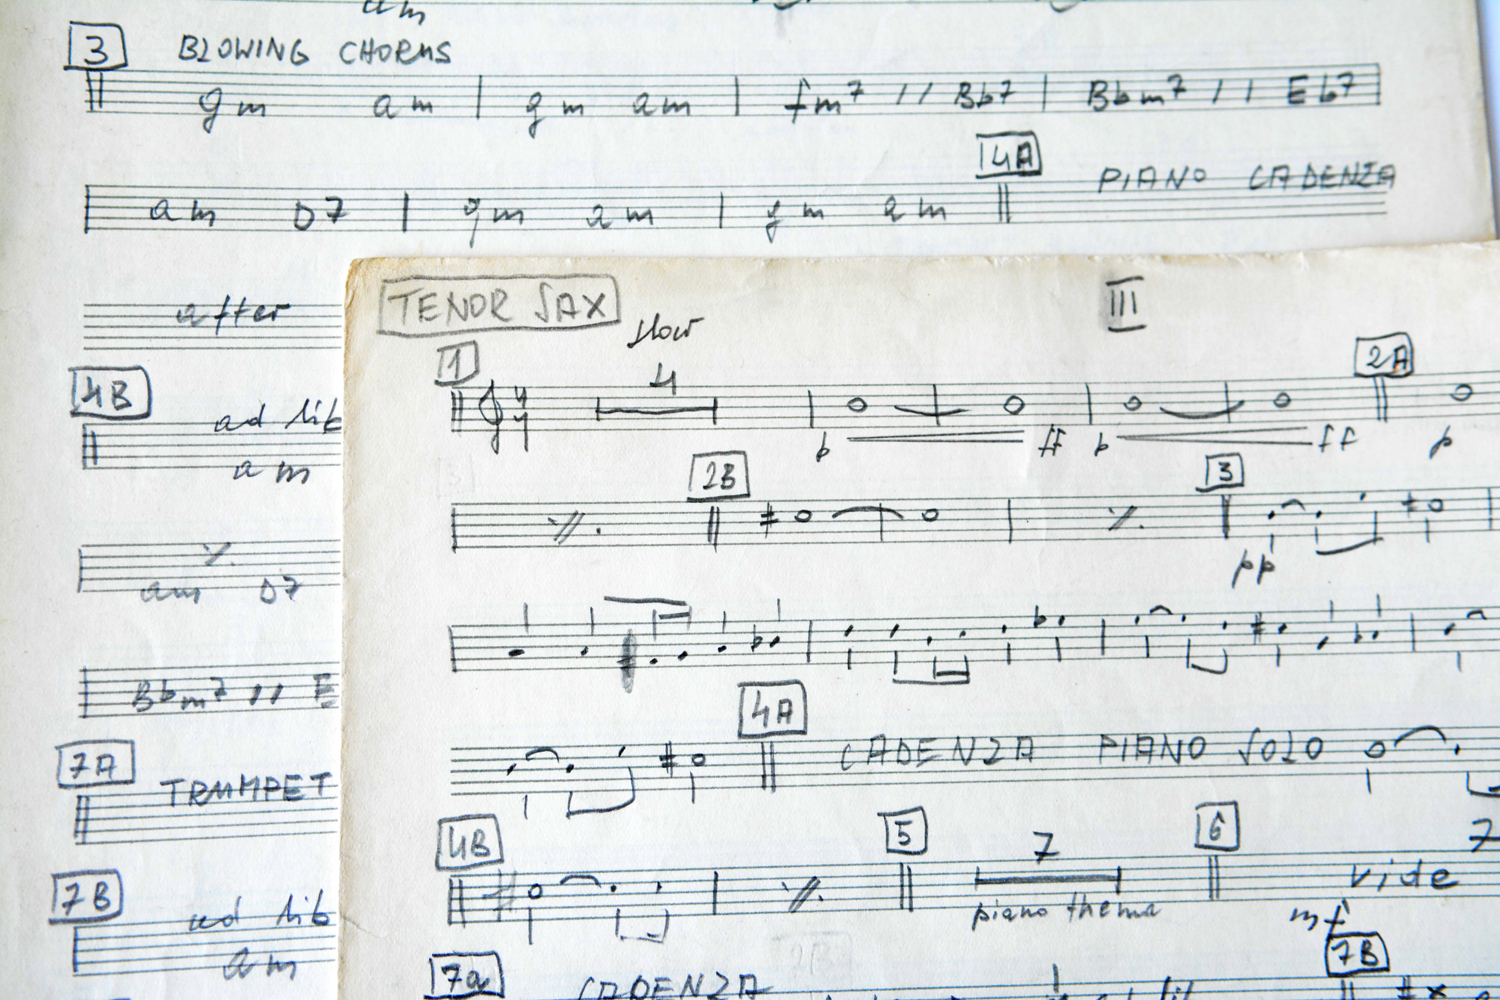 am
3 BLOWING CHORUS
gm am | gm am | fm7 // Bb7 | Bbm7 // Eb7
4A PIANO CADENZA
am D7 | gm am | gm am
after
4B ad lib
am
am D7
Bbm7 // E
7A TRUMPET
7B ad lib
am
TENOR SAX III
slow
1 4 2A
4/4
p ff p ff p
2B 3
pp
4A CADENZA PIANO SOLO
4B 5 7 6 7
vide
piano thema mf
7a CADENZA 7B
ad lib